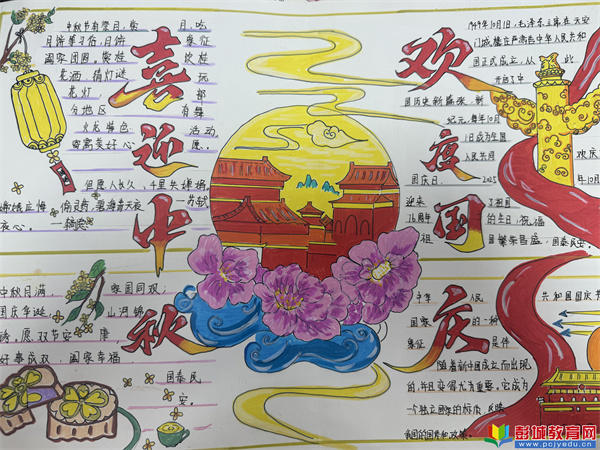 喜迎中秋
中秋节有赏月、吃
月饼等习俗，月饼 象征
阖家团圆。赏桂 饮桂
花酒 猜灯谜 玩
花灯， 部
分地区 有舞
火龙等 活动，
寄寓美好心 愿。
但愿人长久，千里共婵娟。
——苏轼
嫦娥应悔偷灵药，碧海青天夜
夜心。
中秋月满， 家国同欢；
国庆华诞， 山河锦
绣，愿双节安 康，
好事成双，阖家幸福
国泰民
安。
欢度国庆
1949年10月1日，毛泽东主席在天安
门城楼庄严宣告中华人民共和
国正式成立，从 此
开启了中
国历史新篇章，新
纪元。每年10月
1日成为全国
人民共同
国庆日。 2025
年10月
欢庆
迎来 了祖国
76周年 的生日，祝福
祖 国繁荣昌盛，国泰民安。
中华 人民
共和国国庆节
国家 的一种
象征 是伴
随着新中国成立而出现
的，并且变得尤为重要。它成为
一个独立国家的标志，反映
我国的国势和政策。
彭城教育网
www.pcjyedu.cn